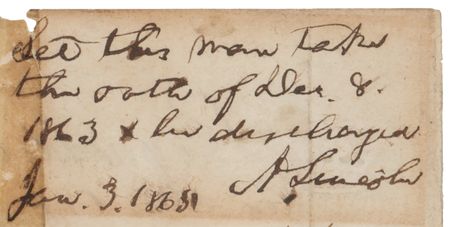 Let this man take
the oath of Dec. 8.
1863 & be discharged
A. Lincoln
Jan. 3. 1865